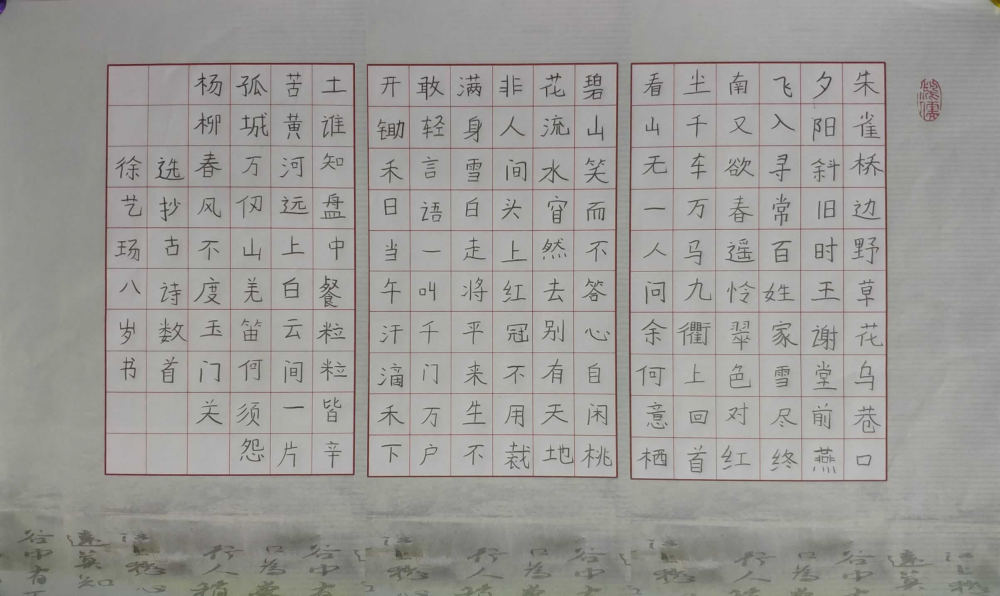 朱雀桥边野草花乌巷口
夕阳斜旧时王谢堂前燕
飞入寻常百姓家雪尽终
南又欲春遥怜翠色对红
尘千车万马九衢上回首
看山无一人问余何意栖
碧山笑而不答心自闲桃
花流水窅然去别有天地
非人间头上红冠不用裁
满身雪白走将平来生不
敢轻言语一叫千门万户
开锄禾日当午汗滴禾下
土谁知盘中餐粒粒皆辛
苦黄河远上白云间一片
孤城万仞山羌笛何须怨
杨柳春风不度玉门关
选抄古诗数首
徐艺玚八岁书